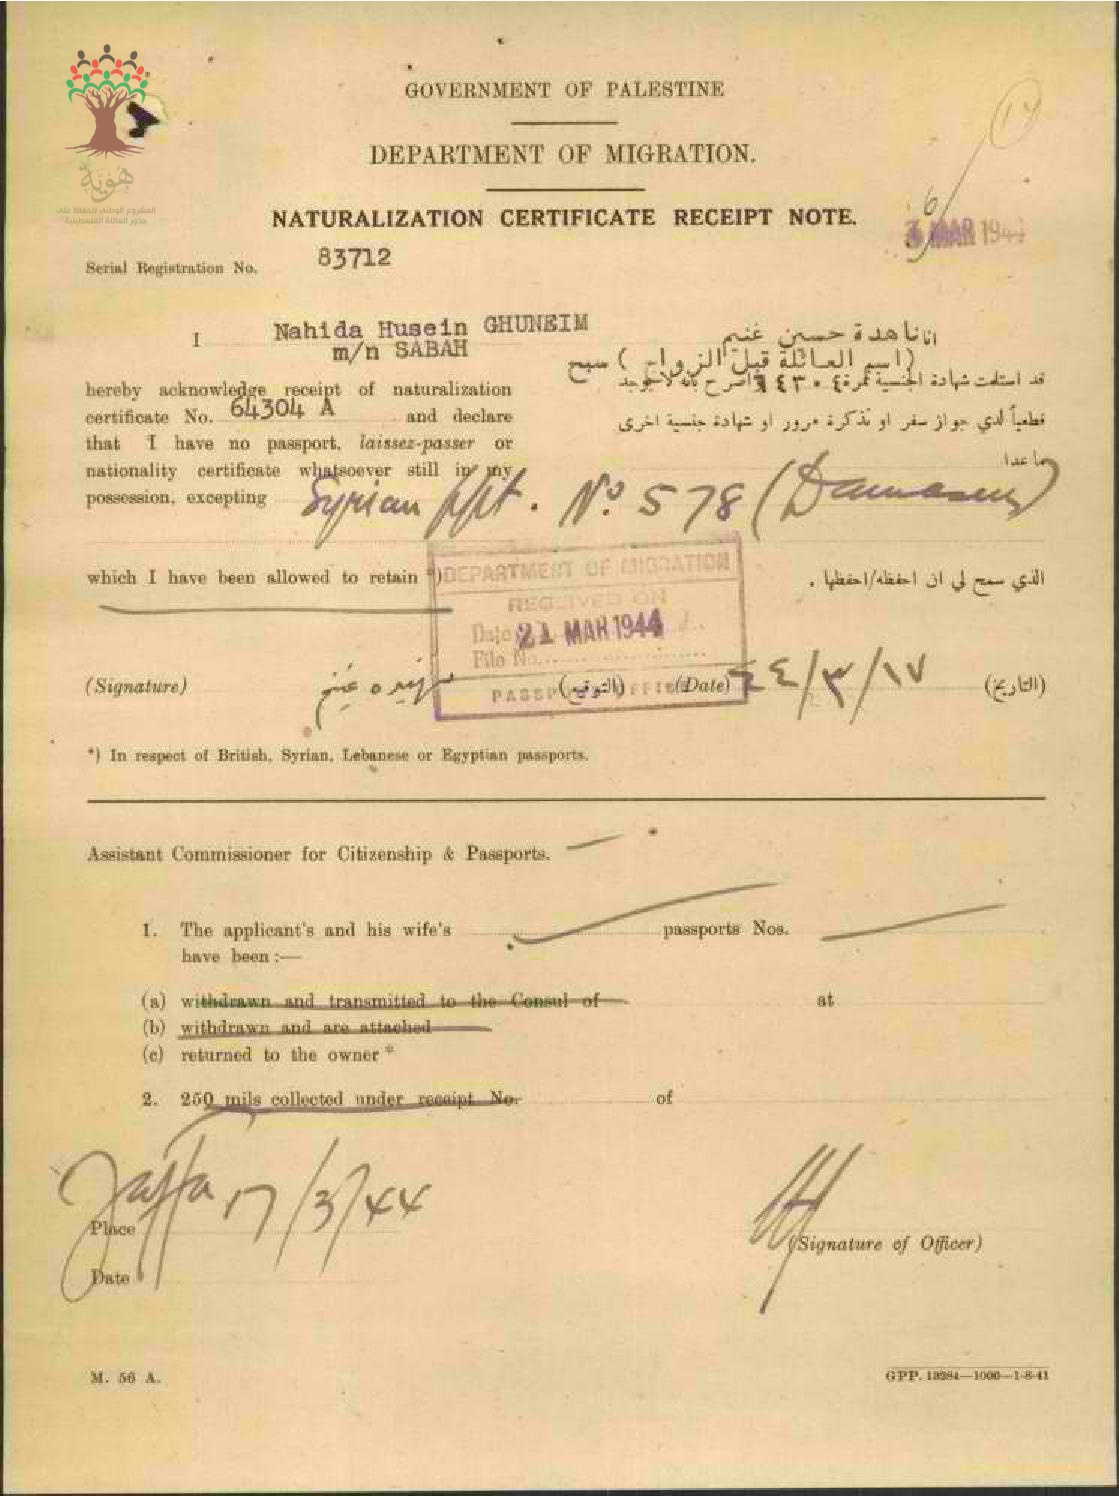 هوية
المشروع الوطني للحفاظ على
جذور العائلة الفلسطينية
GOVERNMENT OF PALESTINE
DEPARTMENT OF MIGRATION.
NATURALIZATION CERTIFICATE RECEIPT NOTE.
6
MAR 1944
Serial Registration No. 83712
I Nahida Husein GHUNEIM
m/n SABAH
hereby acknowledge receipt of naturalization
certificate No. 64304 A and declare
that I have no passport, laissez-passer or
nationality certificate whatsoever still in my
possession, excepting Syrian ppt. No. 578 (Damascus)
انا ناهدة حسين غنيم
(اسم العائلة قبل الزواج) سبح
قد استلمت شهادة الجنسية نمرة ٦٤٣٠٤ اصرح بانه لا يوجد
قطعياً لدي جواز سفر او تذكرة مرور او شهادة جنسية اخرى
ما عدا
which I have been allowed to retain *)
الذي سمح لي ان احفظه/احفظها .
DEPARTMENT OF MIGRATION
RECEIVED ON
Date 21 MAR 1944
File No.
PASSPORT OFFICE
(Signature) غنيم (التوقيع) (Date) ٤٤/٣/١٧ (التاريخ)
*) In respect of British, Syrian, Lebanese or Egyptian passports.
Assistant Commissioner for Citizenship & Passports.
1. The applicant's and his wife's passports Nos.
have been :—
(a) withdrawn and transmitted to the Consul of at
(b) withdrawn and are attached
(c) returned to the owner *
2. 250 mils collected under receipt No. of
Jaffa 17/3/44
Place
Date
(Signature of Officer)
M. 56 A.
GPP. 13284—1000—1-8-41